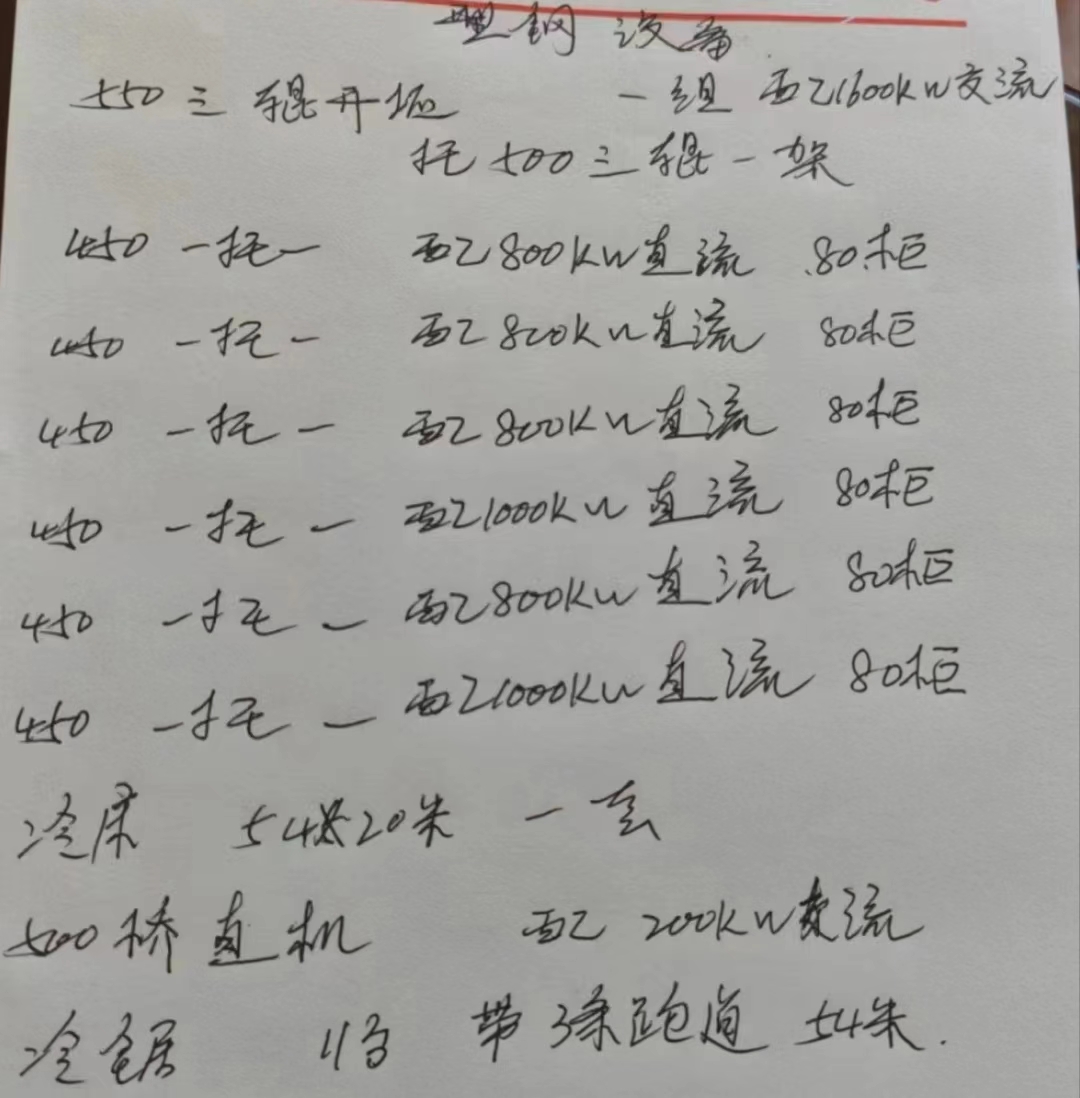 型钢设备
550三辊开坯 一组 配1600KW交流
托500三辊一架
450 一托一 配800KW直流 80柜
450 一托一 配800KW直流 80柜
450 一托一 配800KW直流 80柜
450 一托一 配1000KW直流 80柜
450 一托一 配800KW直流 80柜
450 一托一 配1000KW直流 80柜
冷床 54米20米 一套
500桥直机 配 200KW 流
冷锯 11台 带3条跑道 54米.